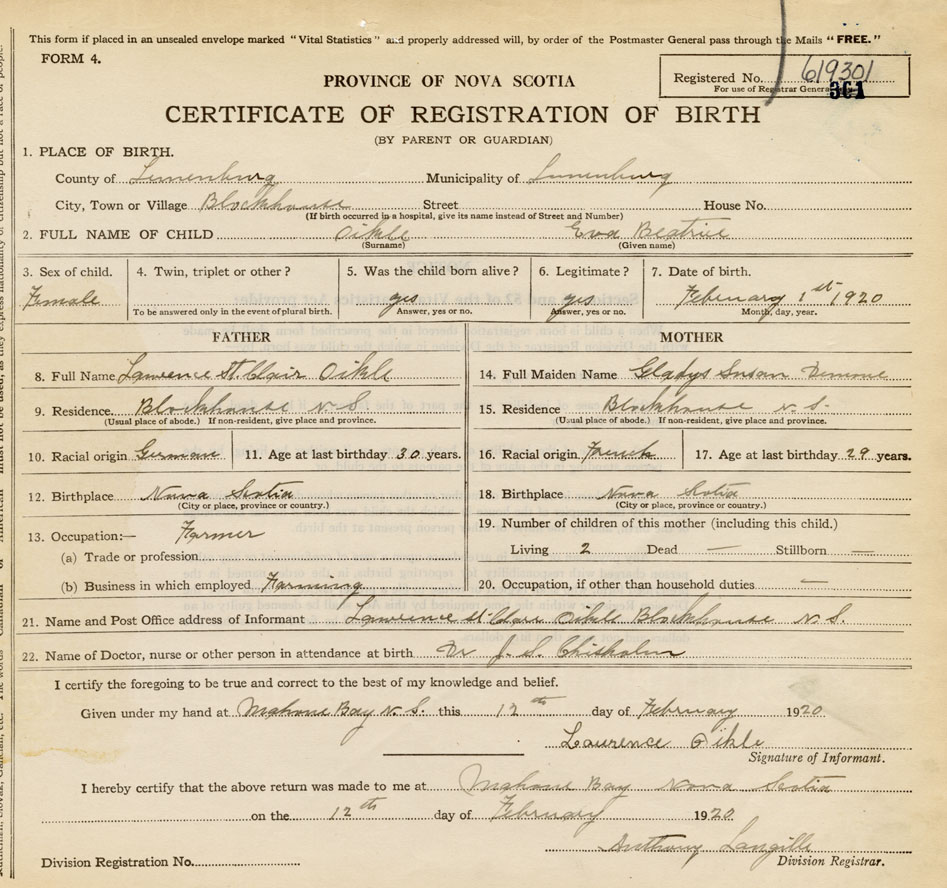 This form if placed in an unsealed envelope marked "Vital Statistics" and properly addressed will, by order of the Postmaster General pass through the Mails "FREE."
FORM 4.
Registered No. 619301
For use of Registrar General
361
PROVINCE OF NOVA SCOTIA
CERTIFICATE OF REGISTRATION OF BIRTH
(BY PARENT OR GUARDIAN)
1. PLACE OF BIRTH.
County of Lunenburg Municipality of Lunenburg
City, Town or Village Blockhouse Street House No.
(If birth occurred in a hospital, give its name instead of Street and Number)
2. FULL NAME OF CHILD Oikle Eva Beatrice
(Surname) (Given name)
3. Sex of child. 4. Twin, triplet or other? 5. Was the child born alive? 6. Legitimate? 7. Date of birth.
Female yes yes February 1st 1920
To be answered only in the event of plural birth. Answer, yes or no. Answer, yes or no. Month, day, year.
FATHER MOTHER
8. Full Name Lawrence St. Clair Oikle 14. Full Maiden Name Gladys Susan Demone
9. Residence. Blockhouse N.S. 15. Residence Blockhouse N.S.
(Usual place of abode.) If non-resident, give place and province. (Usual place of abode.) If non-resident, give place and province.
10. Racial origin German 11. Age at last birthday 30 years. 16. Racial origin French 17. Age at last birthday 29 years.
12. Birthplace Nova Scotia 18. Birthplace Nova Scotia
(City or place, province or country.) (City or place, province or country.)
13. Occupation:— Farmer 19. Number of children of this mother (including this child.)
(a) Trade or profession Living 2 Dead — Stillborn —
(b) Business in which employed Farming 20. Occupation, if other than household duties —
21. Name and Post Office address of Informant Lawrence St Clair Oikle Blockhouse N.S.
22. Name of Doctor, nurse or other person in attendance at birth Dr J. S. Chisholm
I certify the foregoing to be true and correct to the best of my knowledge and belief.
Given under my hand at Mahone Bay N.S. this 12th day of February 1920
Laurence Oikle
Signature of Informant.
I hereby certify that the above return was made to me at Mahone Bay Nova Scotia
on the 12th day of February 1920
Anthony Langille
Division Registration No. Division Registrar.